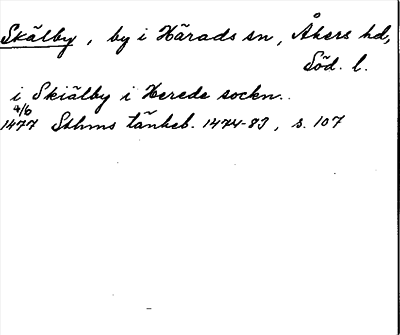 Skälby, by i Härads sn, Åkers hd,
Söd. l.
i Skiälby i Herede sockn.
4/6
1477 Sthms tänkeb. 1474-83, s. 107